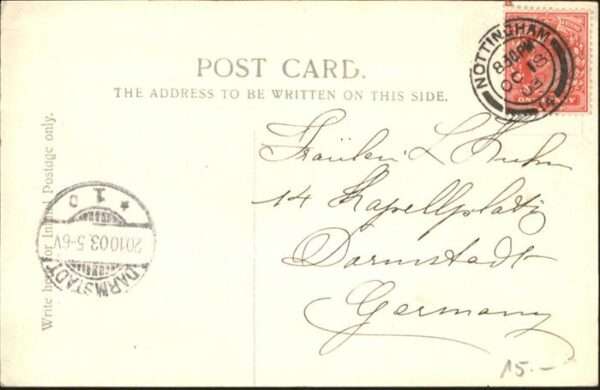 POST CARD.
THE ADDRESS TO BE WRITTEN ON THIS SIDE.
NOTTINGHAM
8.30PM
OC 18
03
Write here for Inland Postage only.
DARMSTADT
20.10.03.5-6V
* 1 c
Fräulein L Kuhn
14 Kapellplatz
Darmstadt
Germany
15.-